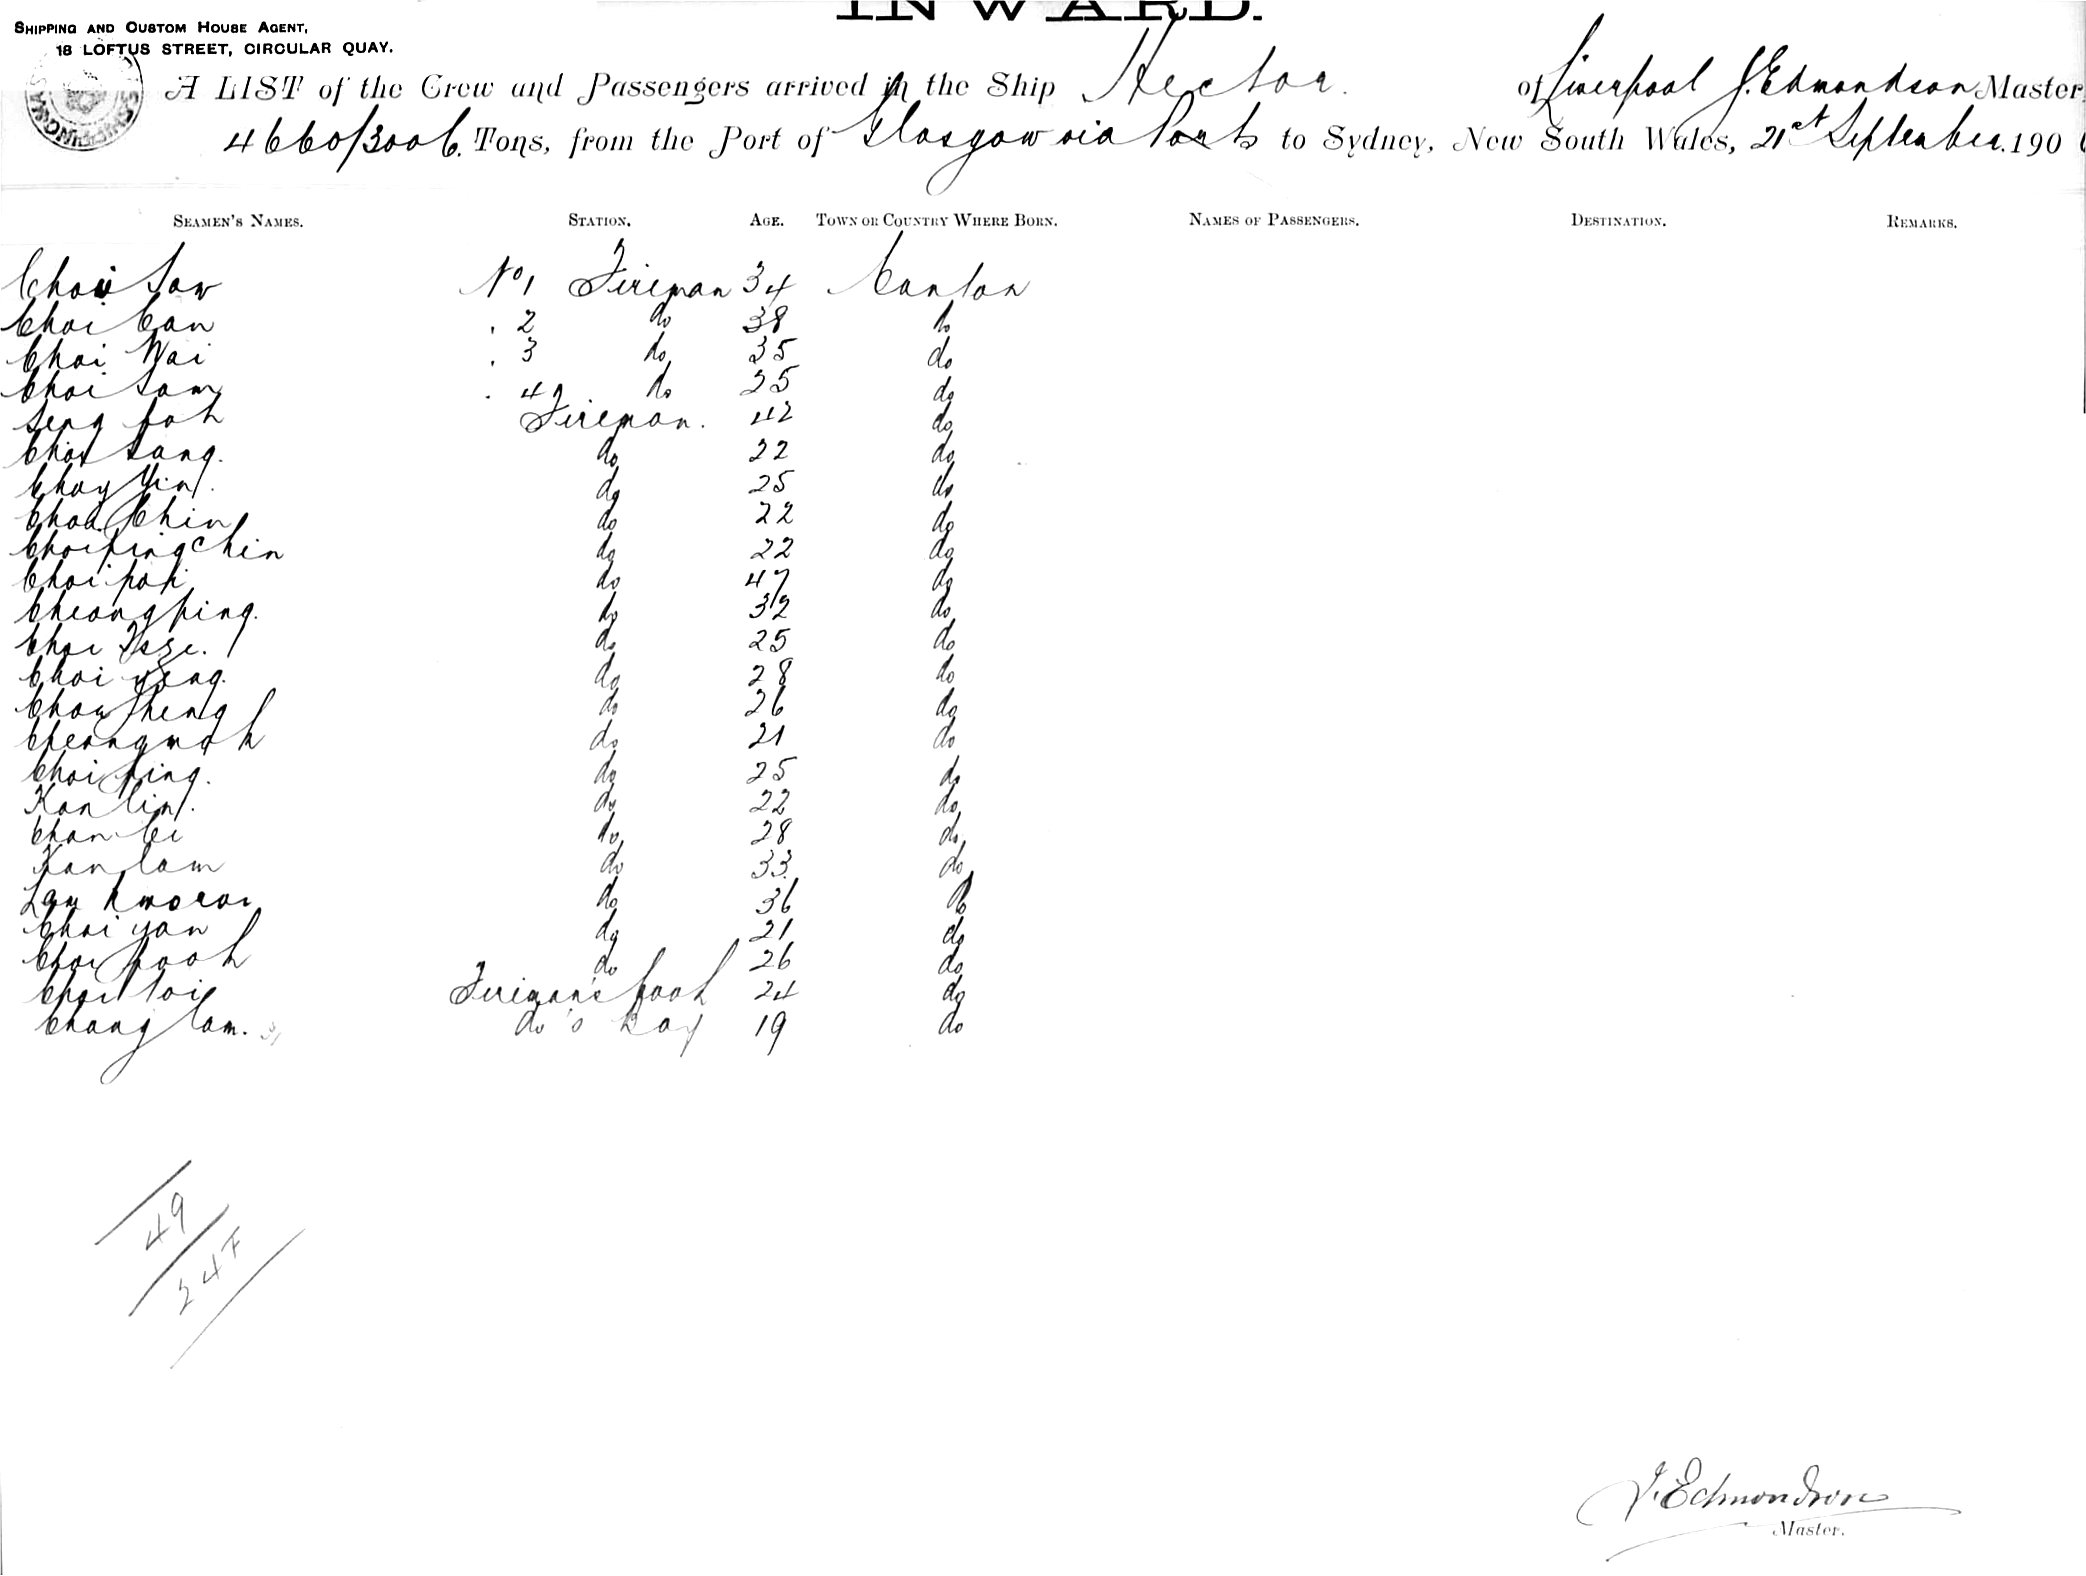 INWARD.
SHIPPING AND CUSTOM HOUSE AGENT,
18 LOFTUS STREET, CIRCULAR QUAY.
A LIST of the Crew and Passengers arrived in the Ship Hector. of Liverpool J. Edmondson Master
4660/3006. Tons, from the Port of Glasgow via Ports to Sydney, New South Wales, 21st September. 190
SEAMEN'S NAMES. STATION. AGE. TOWN OR COUNTRY WHERE BORN. NAMES OF PASSENGERS. DESTINATION. REMARKS.
Choi Sow No 1 Fireman 34 Canton
Choi Can . 2 do 38 do
Choi Wai . 3 do 35 do
Choi Sam . 4 do 25 do
Seng Fireman. 42 do
Choi Sang. do 22 do
Choy Yin. do 25 do
Choi Chin do 22 do
Choi ping Chin do 22 do
Choi poh do 47 do
Cheong ping. do 32 do
Choi Isze. do 25 do
Choi do 28 do
Chow Sheng do 26 do
Cheong do 21 do
Choi ping. do 25 do
Kan lin. do 22 do
Chan Ci do 28 do
Kan lam do 33. do
Lau do 36 do
Choi yan do 21 do
Choi do 26 do
Choi loi Fireman's Cook 24 do
Chang lam. do's Boy 19 do
49
24 F
J. Edmondson
Master.